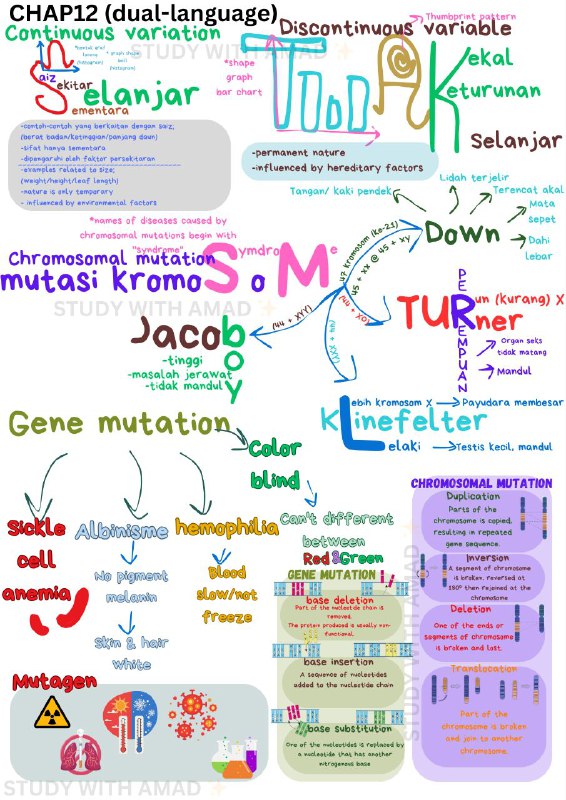 CHAP12 (dual-language)
Continuous variation
STUDY WITH AMAD
* graph shape
bell
(histogram)
aiz
Sekitar
Selanjar
Sementara
-contoh-contoh yang berkaitan dengan saiz;
(berat badan/ketinggian/panjang daun)
-sifat hanya sementara
-dipengaruhi oleh faktor persekitaran
-examples related to size;
(weight/height/leaf length)
-nature is only temporary
- influenced by environmental factors
Discontinuous variable
Thumbprint pattern
*shape
graph
bar chart
TIDAK
Kekal
Keturunan
Selanjar
-permanent nature
-influenced by hereditary factors
*names of diseases caused by
chromosomal mutations begin with
"syndrome"
Chromosomal mutation
mutasi kromoSoM
Symdrome
STUDY WITH AMAD
47 kromosom (ke-21)
45 + xx @ 45 + xy
Down
Tangan/ kaki pendek
Lidah terjelir
Terencat akal
Mata
sepet
Dahi
lebar
(44 + XO)
TURner
PEREMPUAN
un (kurang) X
Organ seks
tidak matang
Mandul
(44 + XYY)
Jacob
boy
-tinggi
-masalah jerawat
-tidak mandul
(44 + XXY)
KLinefelter
Lebih kromosom X
Payudara membesar
Lelaki
Testis kecil, mandul
Gene mutation
Color
blind
Can't different
between
Red & Green
Sickle
cell
anemia
Albinisme
No pigment
melanin
Skin & hair
white
hemophilia
Blood
slow/not
freeze
Mutagen
GENE MUTATION
base deletion
Part of the nucleotide chain is
removed.
The protein produced is usually non-
functional.
base insertion
A sequence of nucleotides
added to the nucleotide chain
base substitution
One of the nucleotides is replaced by
a nucleotide that has another
nitrogenous base
CHROMOSOMAL MUTATION
Duplication
Parts of the
chromosome is copied,
resulting in repeated
gene sequence.
Inversion
A segment of chromosome
is broken, reversed at
180° then rejoined at the
chromosome
Deletion
One of the ends or
segments of chromosome
is broken and lost.
Translocation
Part of the
chromosome is broken
and join to another
chromosome.
STUDY WITH AMAD
STUDY WITH AMAD